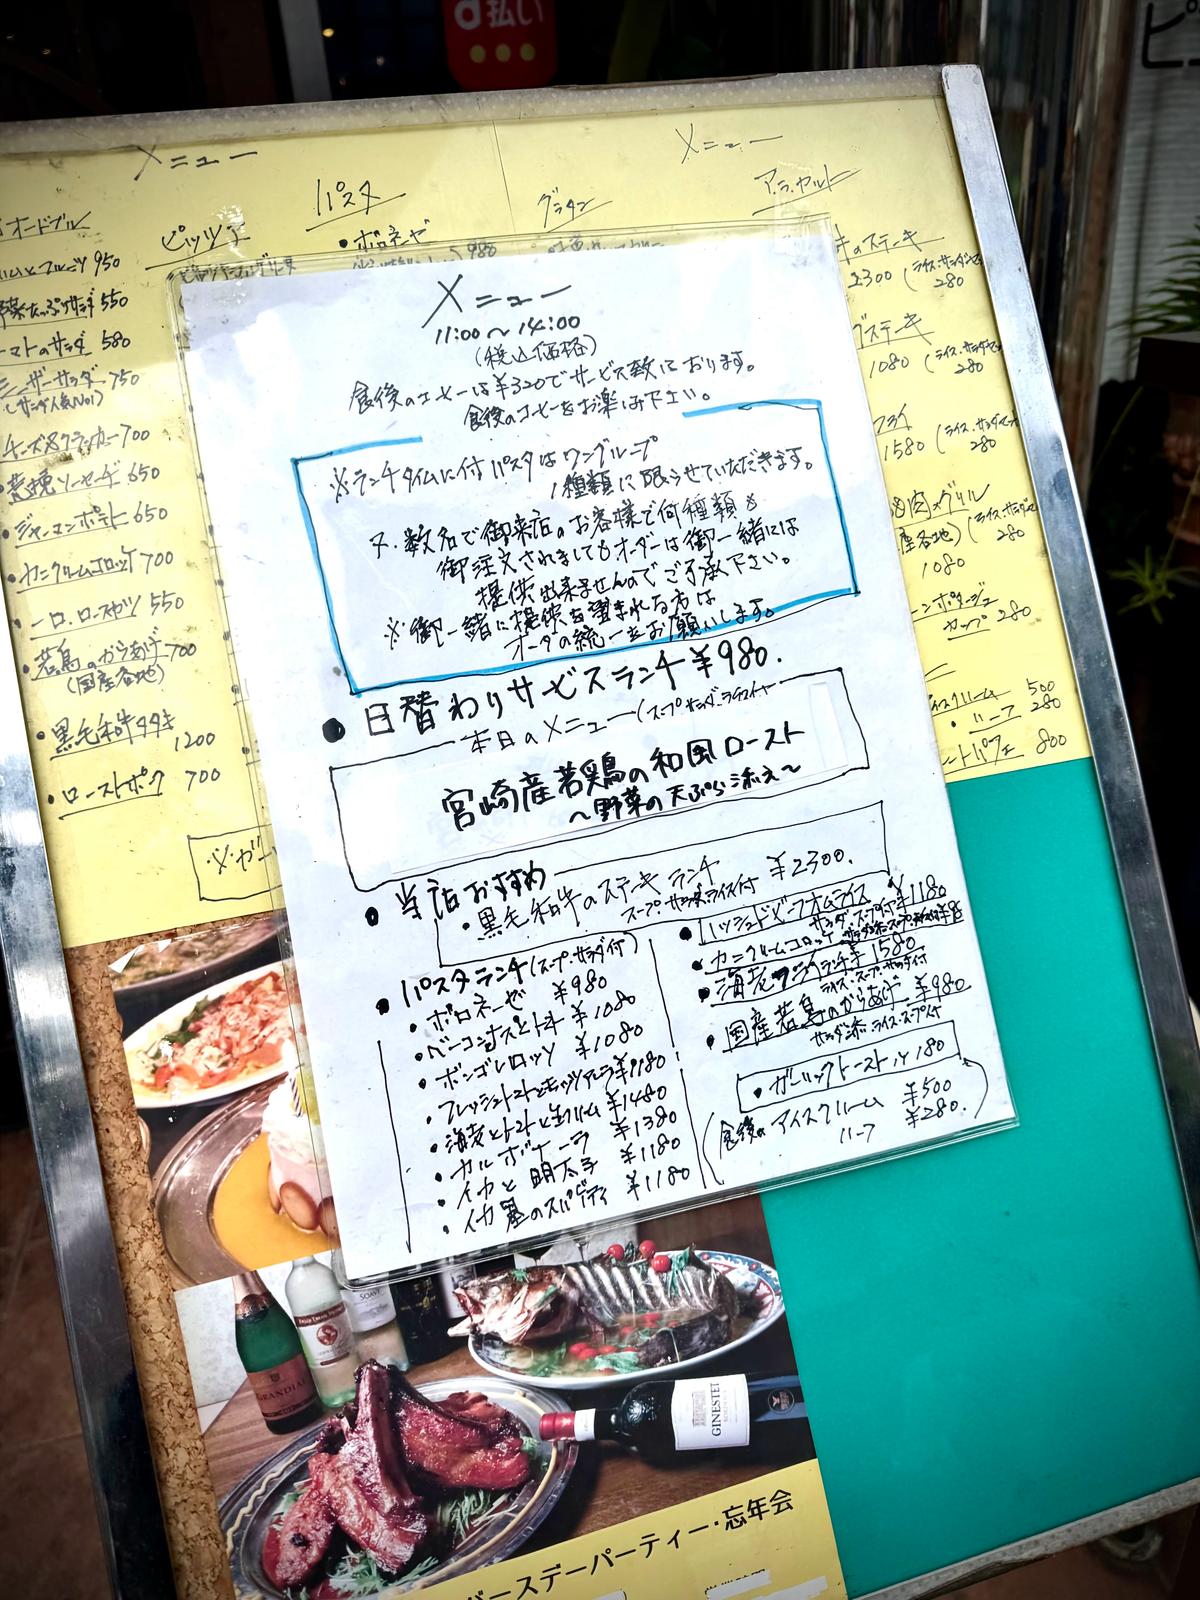 d払い
ピ
メニュー
メニュー
オードブル
ピッツァ
パスタ
グラタン
ア.ラ.カルト
950
550
トマトのサラダ 580
シーザーサラダ 750
(サラダ人気No1)
チーズ&クラッカー 700
荒挽ソーセージ 650
・ジャーマンポテト 650
・カニクリームコロッケ 700
550
・若鳥のからあげ 700
(国産各地)
・黒毛和牛タタキ
1200
・ローストポーク 700
・ボロネーゼ
980
のステーキ
2300 (ライス・サラダセット
280
ステーキ
1080 (ライス・サラダセット
280
フライ
1580 (ライス・サラダセット
280
肉のグリル
産各地) (ライス・サラダ
280
1080
ーンポタージュ
カップ 280
アイスクリーム 500
・ハーフ 280
ートパフェ 800
※ガー
メニュー
11:00～14:00
(税込価格)
食後のコーヒーは¥320でサービス致しております。
食後のコーヒーをお楽しみ下さい。
※ランチタイムに付パスタはワングループ
1種類に限らせていただきます。
又、数名で御来店のお客様で何種類も
御注文されましてもオーダーは御一緒には
提供出来ませんのでご了承下さい。
※御一緒に提供を望まれる方は
オーダの統一をお願いします。
● 日替わりサービスランチ ¥980.
本日のメニュー(スープ・サラダ・ライス付
宮崎産若鶏の和風ロースト
～野菜の天ぷら添え～
● 当店おすすめ
・黒毛和牛のステーキランチ ¥2300.
スープ・サラダ・ライス付
● パスタランチ(スープ・サラダ付)
・ボロネーゼ ¥980
・ベーコンナスとトマト ¥1080
・ボンゴレロッソ ¥1080
・フレッシュトマトとモッツァレラ ¥1180
・海老とトマトと生クリーム ¥1480
・カルボナーラ ¥1380
・イカと明太子 ¥1180
・イカ墨のスパゲティ ¥1180
● ハッシュドビーフオムライス ¥1180
サラダ・スープ付
・カニクリームコロッケ
● 海老フライランチ ¥1580
ライス・スープ・サラダ付
● 国産若鳥のからあげ ¥980
サラダ添 ライス・スープ付
・ガーリックトースト ¥180
(食後のアイスクリーム ¥500
ハーフ ¥280.)
SOAVE
GRANDIAL
GINESTET
バースデーパーティー・忘年会